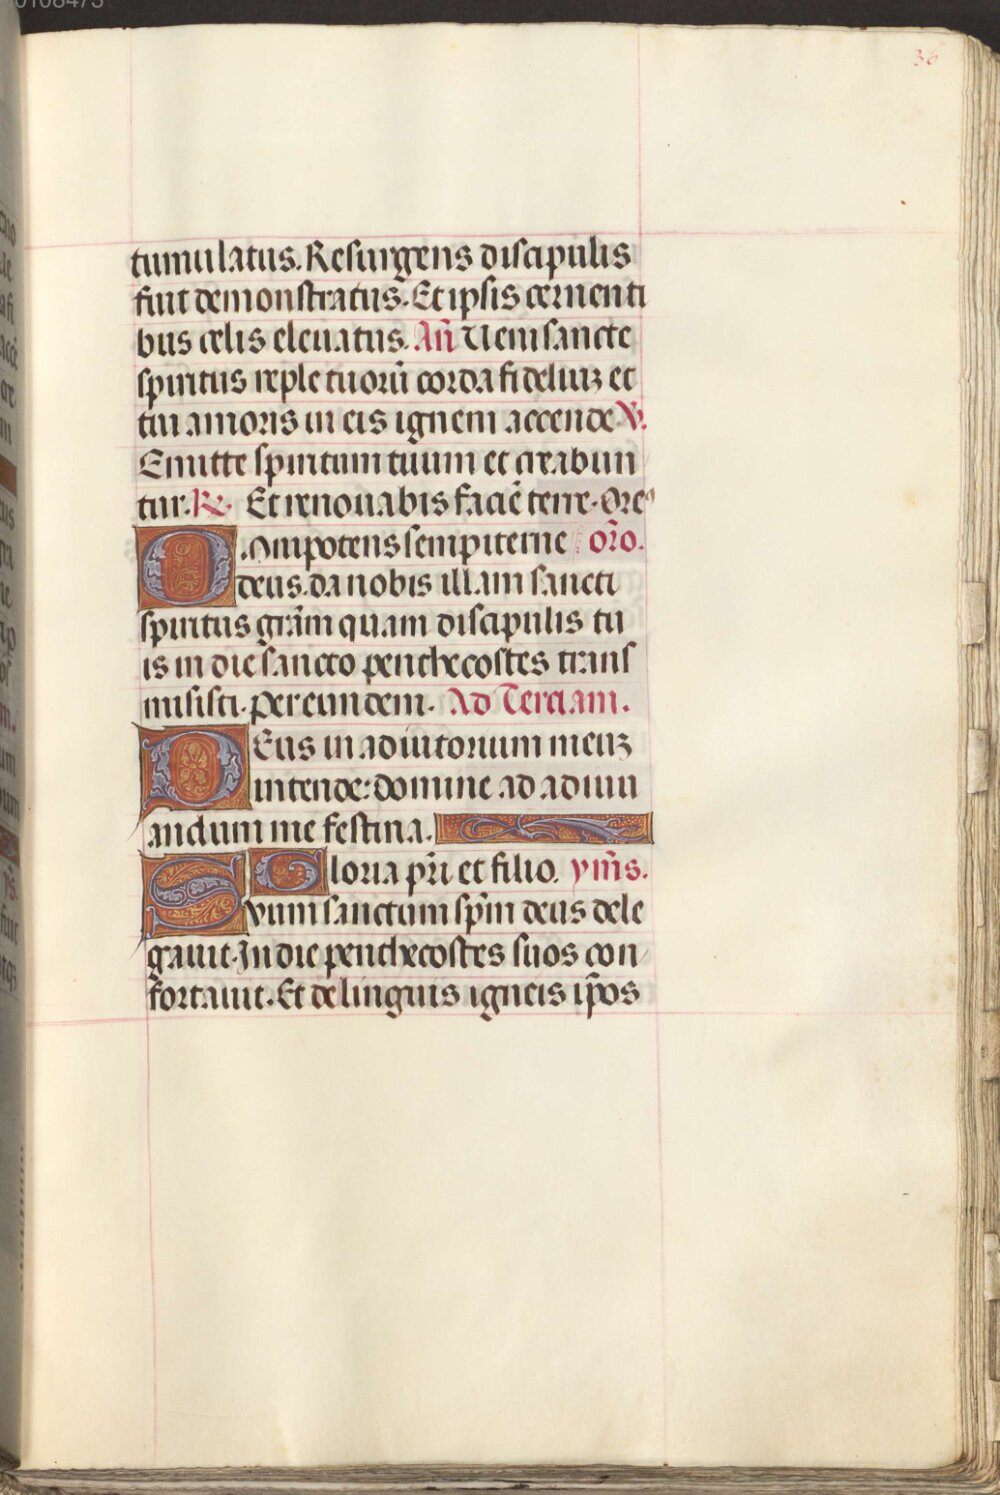 0108473
36
tumulatus. Resurgens discipulis
fuit demonstratus. Et ipsis cernenti
bus celis eleuatus. Añ Ueni sancte
spiritus reple tuorũ corda fideliuꝫ et
tui amoris in eis ignem accende ℣.
Emitte spiritum tuum et creabun
tur. ℟. Et renouabis faciẽ terre. Oreꝰ
Omnipotens sempiterne or̃o.
deus. da nobis illam sancti
spiritus grãm quam discipulis tu
is in die sancto penthecostes trans
misisti. Per eundem. Ad Terciam.
DEus in adiutorium meuꝫ
intende: domine ad adiuu
andum me festina.
Gloria pr̃i et filio. ym̃s.
Suum sanctum sp̃m deus dele
gauit. In die penthecostes suos con
fortauit. Et de linguis igneis ip̃os